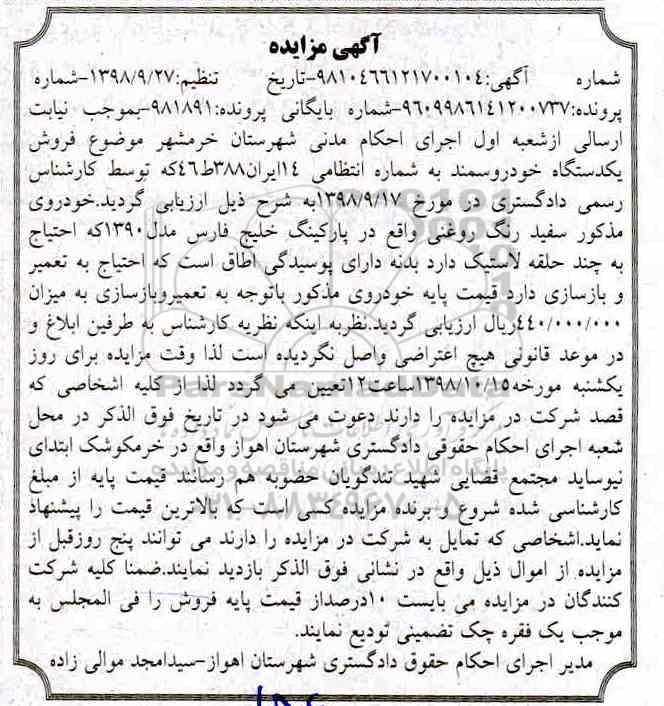 آگهی مزایده
شماره آگهی:۹۸۱۰۴۶۶۱۲۱۷۰۰۱۰۴-تاریخ تنظیم:۱۳۹۸/۹/۲۷-شماره
پرونده:۹۶۰۹۹۸۶۱۴۱۲۰۰۷۳۷-شماره بایگانی پرونده:۹۸۱۸۹۱-بموجب نیابت
ارسالی ازشعبه اول اجرای احکام مدنی شهرستان خرمشهر موضوع فروش
یکدستگاه خودروسمند به شماره انتظامی ۱۴ایران۳۸۸ط۴۶که توسط کارشناس
رسمی دادگستری در مورخ ۱۳۹۸/۹/۱۷به شرح ذیل ارزیابی گردید.خودروی
مذکور سفید رنگ روغنی واقع در پارکینگ خلیج فارس مدل۱۳۹۰که احتیاج
به چند حلقه لاستیک دارد بدنه دارای پوسیدگی اطاق است که احتیاج به تعمیر
و بازسازی دارد قیمت پایه خودروی مذکور باتوجه به تعمیروبازسازی به میزان
۴۴۰/۰۰۰/۰۰۰ریال ارزیابی گردید.نظربه اینکه نظریه کارشناس به طرفین ابلاغ و
در موعد قانونی هیچ اعتراضی واصل نگردیده است لذا وقت مزایده برای روز
یکشنبه مورخه۱۳۹۸/۱۰/۱۵ساعت۱۲تعیین می گردد لذا از کلیه اشخاصی که
قصد شرکت در مزایده را دارند دعوت می شود در تاریخ فوق الذکر در محل
شعبه اجرای احکام حقوقی دادگستری شهرستان اهواز واقع در خرمکوشک ابتدای
نیوساید مجتمع قضایی شهید تندگویان حضوبه هم رسانند قیمت پایه از مبلغ
کارشناسی شده شروع و برنده مزایده کسی است که بالاترین قیمت را پیشنهاد
نماید.اشخاصی که تمایل به شرکت در مزایده را دارند می توانند پنج روزقبل از
مزایده از اموال ذیل واقع در نشانی فوق الذکر بازدید نمایند.ضمنا کلیه شرکت
کنندگان در مزایده می بایست ۱۰درصداز قیمت پایه فروش را فی المجلس به
موجب یک فقره چک تضمینی تودیع نمایند.
مدیر اجرای احکام حقوق دادگستری شهرستان اهواز-سیدامجد موالی زاده
ParsNamadData
پایگاه اطلاع رسانی مناقصه و مزایده
۰۲۱-۸۸۳۴۹۶۷۰-۵